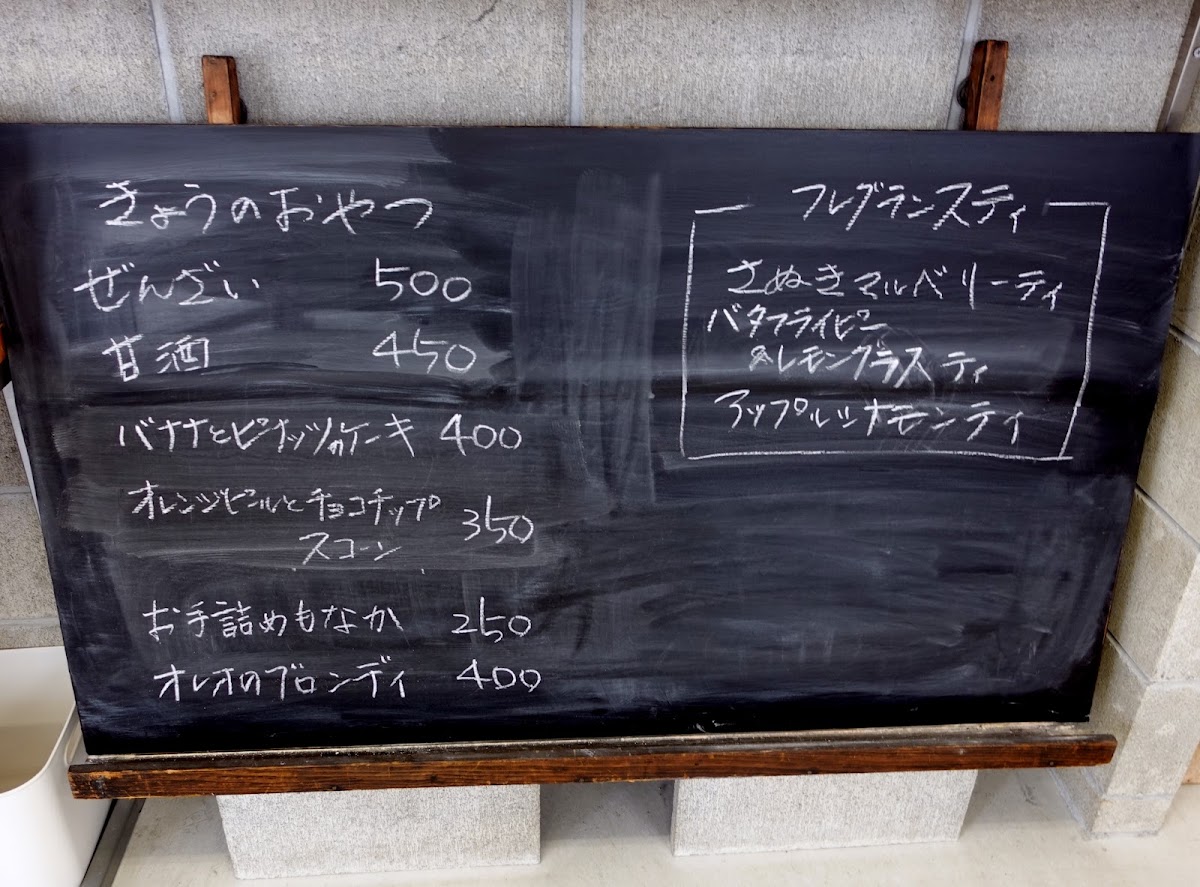 きょうのおやつ
ぜんざい 500
甘酒 450
バナナとピーナッツのケーキ 400
オレンジピールとチョコチップ 350
スコーン
お手詰めもなか 250
オレオのブロンディ 400
フレグランスティ
さぬきマルベリーティ
バタフライピー
&レモングラスティ
アップルシナモンティ